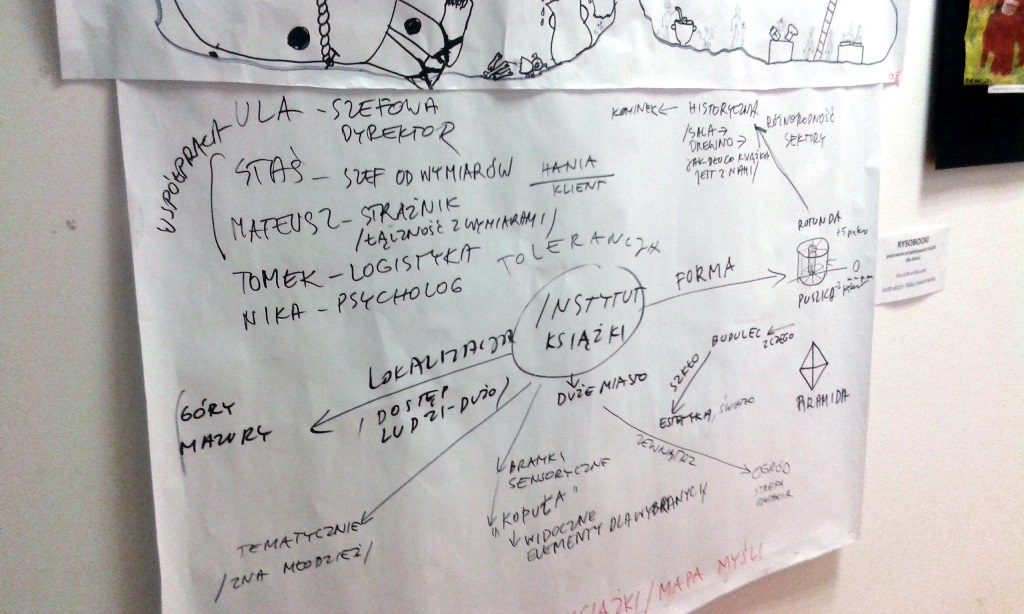 WSPÓŁPRACA
ULA – SZEFOWA
DYREKTOR
STAŚ – SZEF OD WYMIARÓW
HANIA
KLIENT
MATEUSZ – STRAŻNIK
/ŁĄCZNOŚĆ Z WYMIARAMI/
TOMEK – LOGISTYKA
NIKA – PSYCHOLOG
TOLERANCJA
KOMINEK ← HISTORYCZNA
/SALA →
DREWNO →
JAK DŁUGO KSIĄŻKA
JEST Z NAMI/
RÓŻNORODNOŚĆ
SEKTORY
ROTUNDA
PUSZKA
FORMA
INSTYTUT
KSIĄŻKI
BUDULEC
Z CZEGO
SZKŁO
ESTETYKA, ŚWIATŁO
PIRAMIDA
LOKALIZACJA
/DOSTĘP
LUDZI – DUŻO/
GÓRY
MAZURY
DUŻE MIASTO
ZEWNĄTRZ
OGRÓD
STREFA
BRAMKI
SENSORYCZNE
"KOPUŁA"
WIDOCZNE
ELEMENTY DLA WYBRANYCH
TEMATYCZNIE
/ZNA MŁODZIEŻ/
KSIĄŻKI / MAPA MYŚLI
RYSOBOOKI